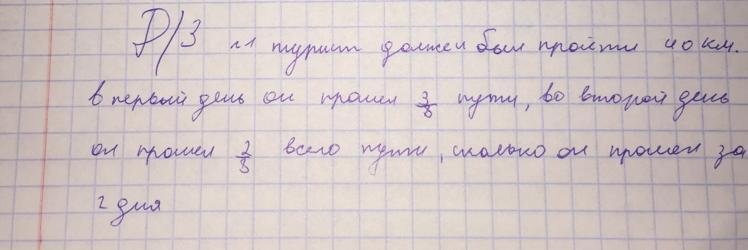 Д/З №1 турист должен был пройти 40 км.
в первый день он прошел 3/8 пути, во второй день
он прошел 2/5 всего пути, сколько он прошел за
2 дня